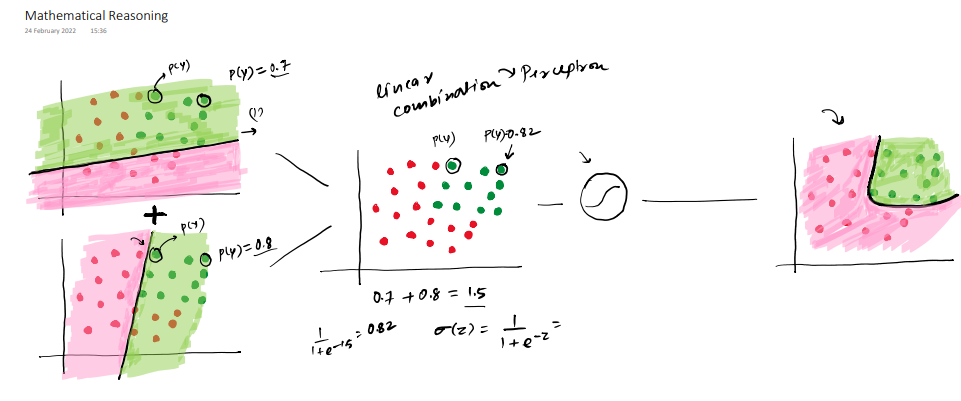 Mathematical Reasoning
24 February 2022 15:36
P(Y)
P(Y) = 0.7
linear combination → Perceptron
P(Y)
P(Y)=0.82
+
P(Y)
P(Y) = 0.8
0.7 + 0.8 = 1.5
1/1+e-1.5 = 0.82
σ(z) = 1/1+e-z =